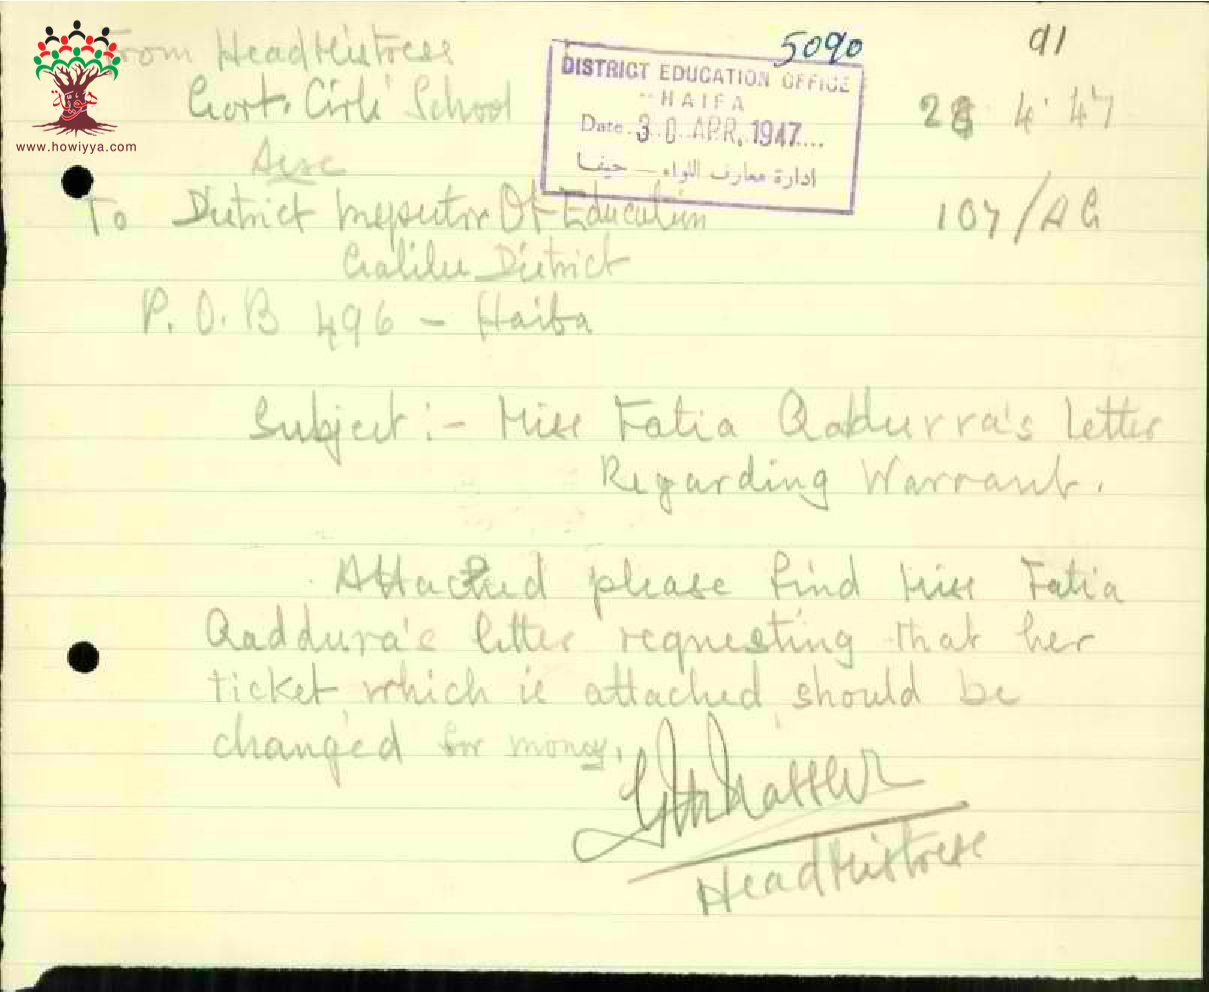 هوية
www.howiyya.com
From HeadMistress
Govt. Girls' School
Acre
5090
91
DISTRICT EDUCATION OFFICE
HAIFA
Date. 30 APR, 1947....
ادارة معارف اللواء - حيفا
28 4. 47
107/AG
To District Inspector Of Education
Galilee District
P. O. B 496 - Haifa
Subject:- Miss Fatia Qadurra's letter
Regarding Warrant.
Attached please find Miss Fatia
Qaddura's letter requesting that her
ticket, which is attached, should be
changed for money.
HeadMistress